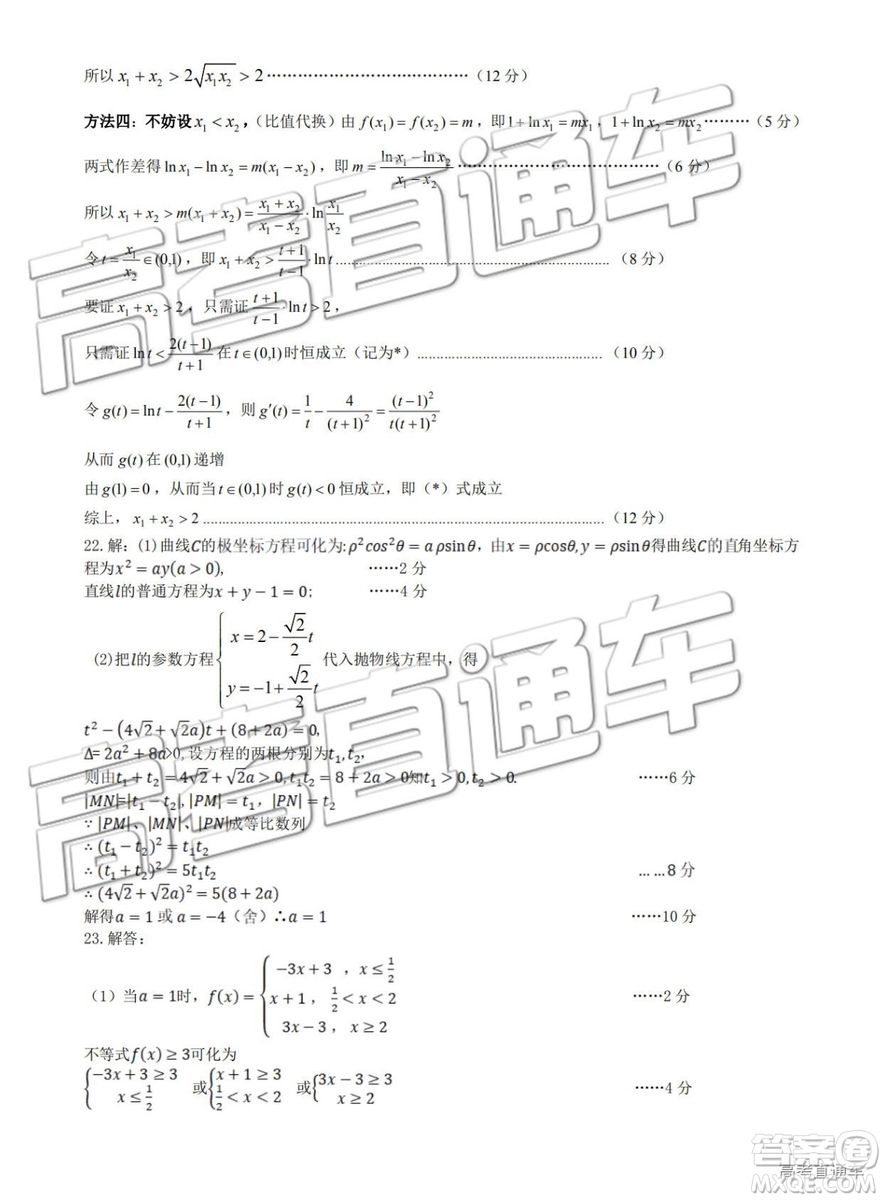 所以 x₁ + x₂ > 2√(x₁x₂) > 2 ………………………………（12 分）
方法四：不妨设 x₁ < x₂，（比值代换）由 f(x₁) = f(x₂) = m，即1 + ln x₁ = mx₁，1 + ln x₂ = mx₂………（5 分）
两式作差得 ln x₁ − ln x₂ = m(x₁ − x₂)，即 m = (ln x₁ − ln x₂)/(x₁ − x₂) ………………………………（6 分）
所以 x₁ + x₂ > m(x₁ + x₂) = (x₁ + x₂)/(x₁ − x₂) · ln (x₁/x₂)
令 t = x₁/x₂ ∈ (0,1)，即 x₁ + x₂ > (t+1)/(t−1) · ln t ................................................（8 分）
要证 x₁ + x₂ > 2，只需证 (t+1)/(t−1) · ln t > 2，
只需证 ln t < 2(t−1)/(t+1) 在 t ∈ (0,1) 时恒成立（记为*）................................（10 分）
令 g(t) = ln t − 2(t−1)/(t+1)，则 g′(t) = 1/t − 4/(t+1)² = (t−1)²/(t(t+1)²)
从而 g(t) 在 (0,1) 递增
由 g(1) = 0，从而当 t ∈ (0,1) 时 g(t) < 0 恒成立，即（*）式成立
综上，x₁ + x₂ > 2 ................................................................（12 分）
22. 解：(1) 曲线C的极坐标方程可化为:ρ²cos²θ = a ρsinθ，由x = ρcosθ, y = ρsinθ得曲线C的直角坐标方
程为x² = ay(a > 0), ……2 分
直线l的普通方程为x + y − 1 = 0; ……4 分
(2)把l的参数方程{x = 2 − (√2/2)t, y = −1 + (√2/2)t 代入抛物线方程中，得
t² − (4√2 + √2a)t + (8 + 2a) = 0,
Δ= 2a² + 8a>0, 设方程的两根分别为t₁, t₂,
则由t₁ + t₂ = 4√2 + √2a > 0, t₁t₂ = 8 + 2a > 0知t₁ > 0, t₂ > 0. ……6 分
|MN|=|t₁ − t₂|, |PM| = t₁，|PN| = t₂
∵ |PM|、|MN|、|PN|成等比数列
∴ (t₁ − t₂)² = t₁t₂
∴ (t₁ + t₂)² = 5t₁t₂ ……8 分
∴ (4√2 + √2a)² = 5(8 + 2a)
解得a = 1 或 a = −4（舍）∴ a = 1 ……10 分
23. 解答：
（1）当a = 1时，f(x) = {−3x + 3 ，x ≤ 1/2; x + 1 ，1/2 < x < 2; 3x − 3 ，x ≥ 2 ……2 分
不等式f(x) ≥ 3可化为
{−3x + 3 ≥ 3, x ≤ 1/2 或{x + 1 ≥ 3, 1/2 < x < 2 或{3x − 3 ≥ 3, x ≥ 2 ……4 分
高考直通车
高考直通车
答案圈
高考直通车
MXQE.COM